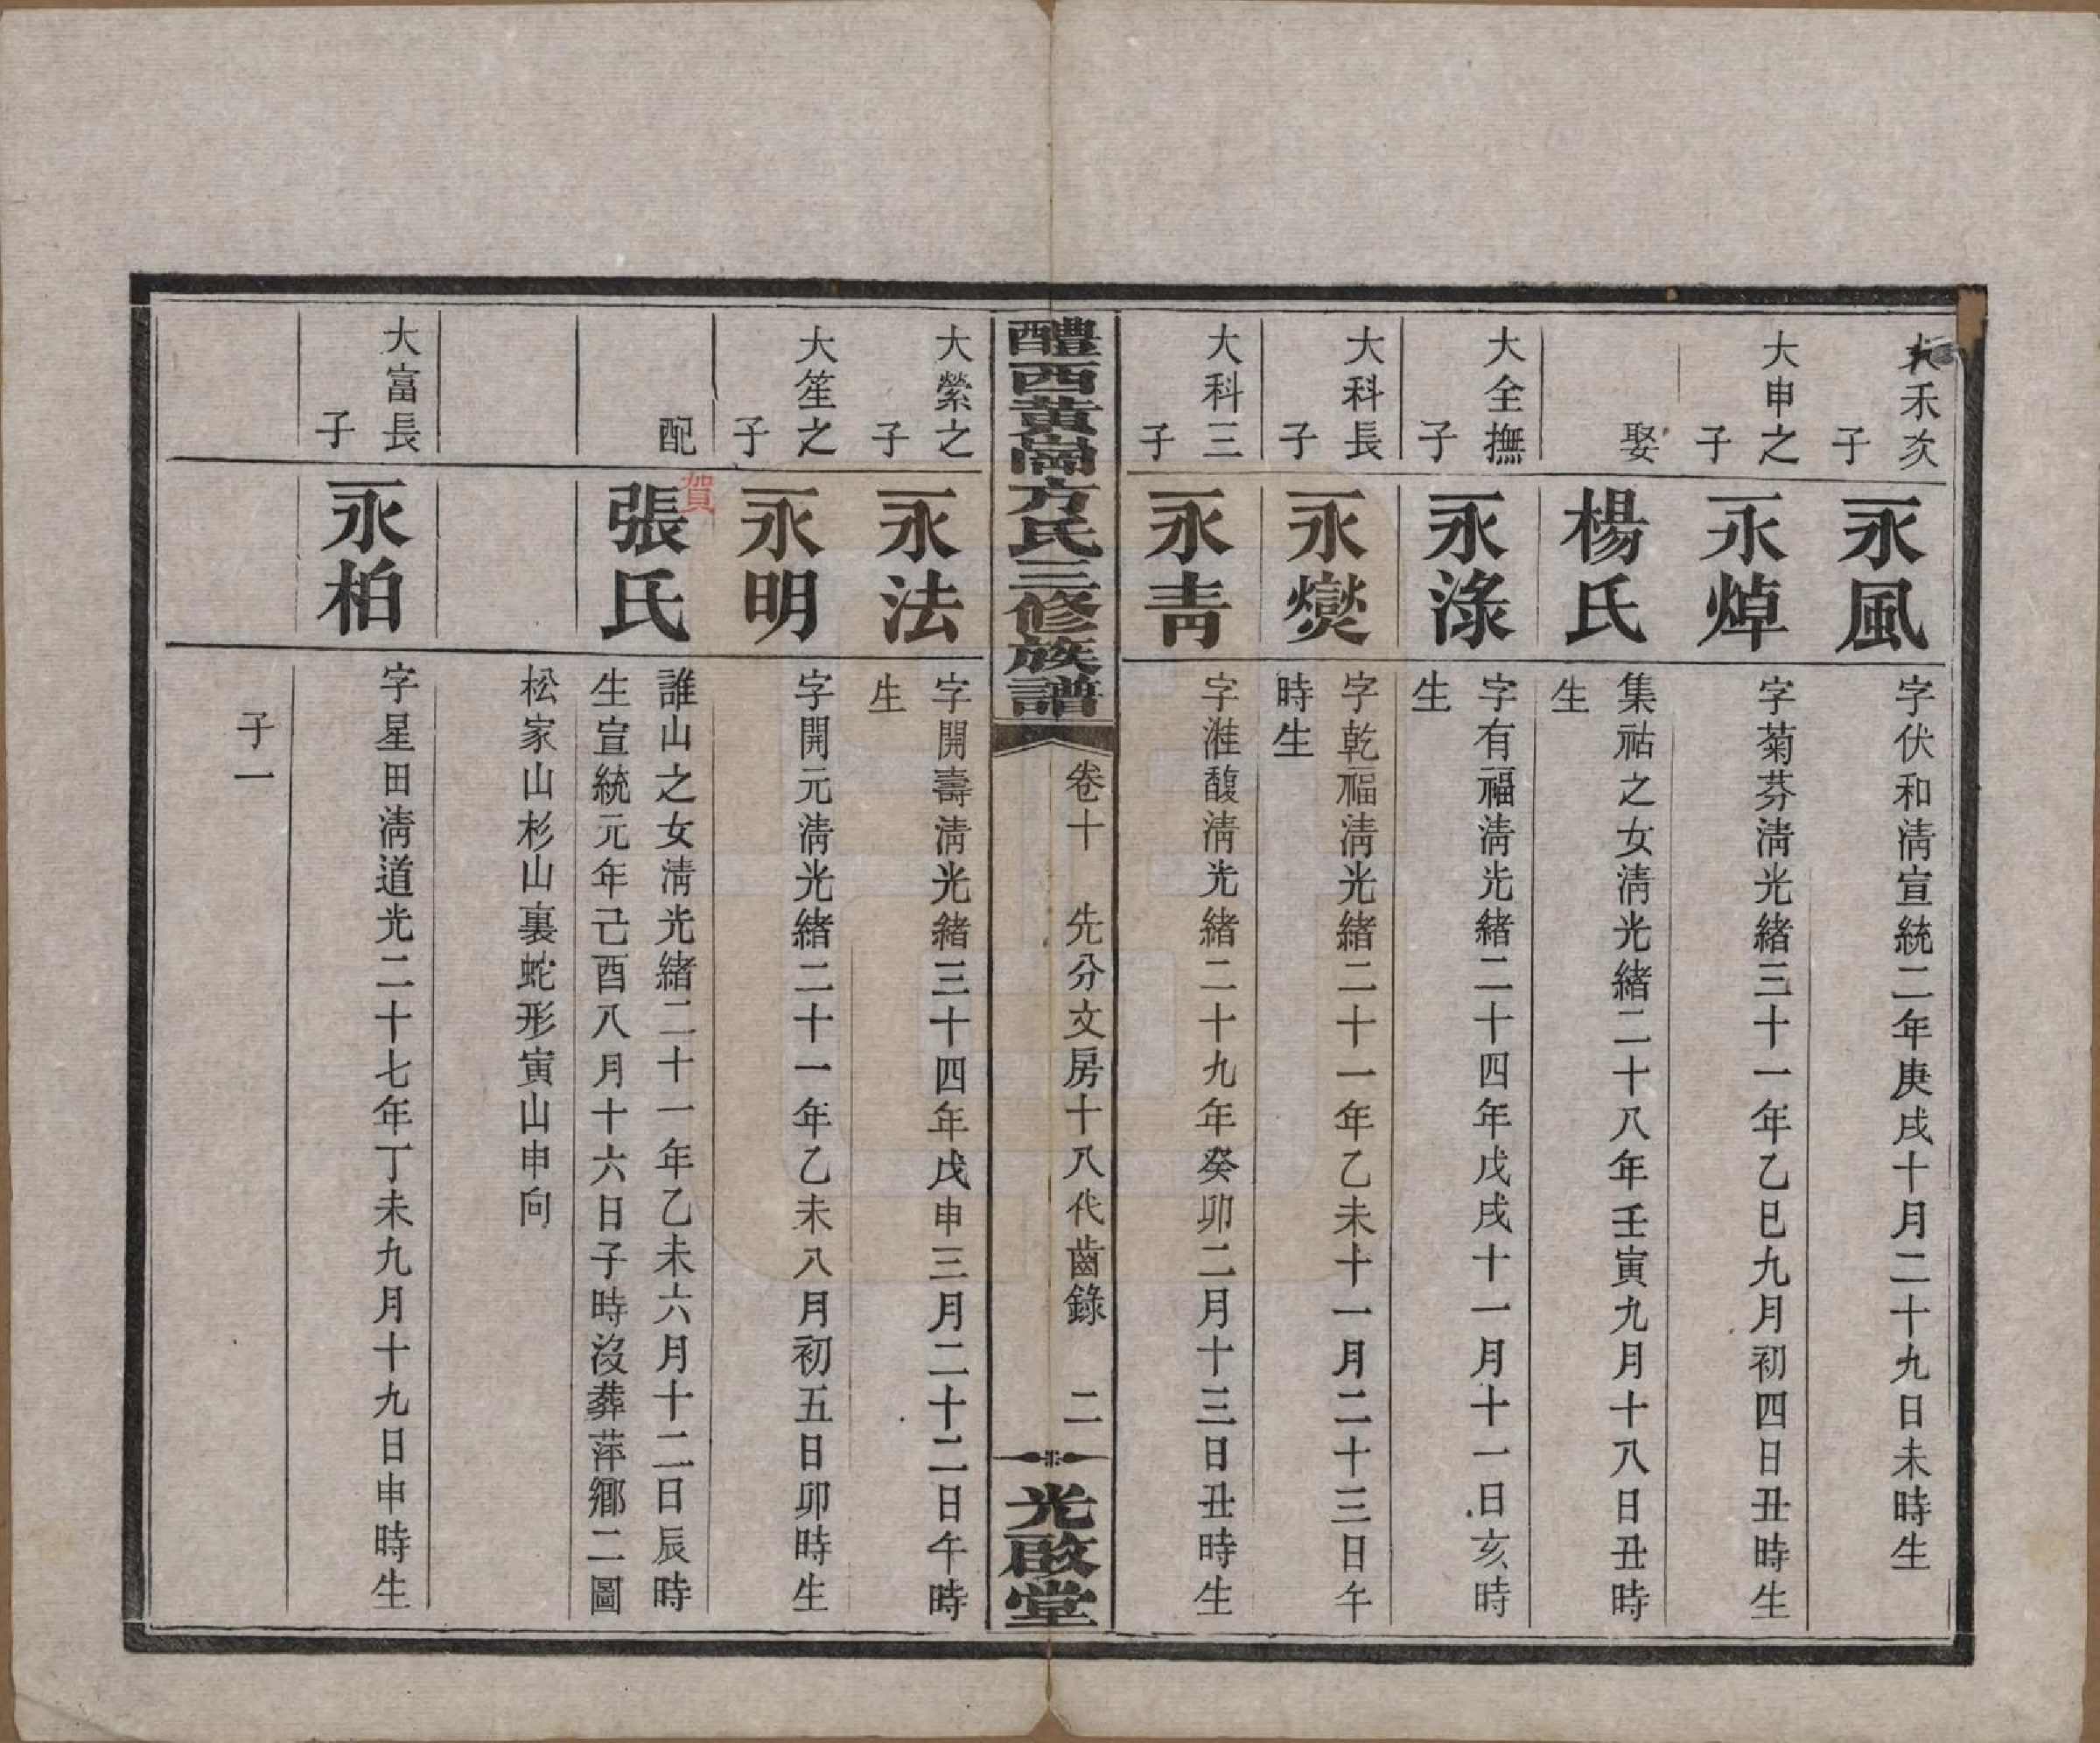 大禾次子
永風
字伏和淸宣統二年庚戌十月二十九日未時生
大申之子
永焯
字菊芬淸光緖三十一年乙巳九月初四日丑時生
娶
楊氏
集祜之女淸光緖二十八年壬寅九月十八日丑時
生
大全撫子
永淥
字有福淸光緖二十四年戊戌十一月十一日亥時
生
大科長子
永爕
字乾福淸光緖二十一年乙未十一月二十三日午
時生
大科三子
永靑
字漼馥淸光緖二十九年癸卯二月十三日丑時生
醴西黃崗方氏三修族譜
卷十 先分文房十八代齒錄 二
光啟堂
大縈之子
永法
字開壽淸光緖三十四年戊申三月二十二日午時
生
大笙之子
永明
字開元淸光緖二十一年乙未八月初五日卯時生
配
賀
張氏
誰山之女淸光緖二十一年乙未六月十二日辰時
生宣統元年己酉八月十六日子時沒葬萍鄉二圖
松家山杉山裏蛇形寅山申向
大富長子
永柏
字星田淸道光二十七年丁未九月十九日申時生
子一